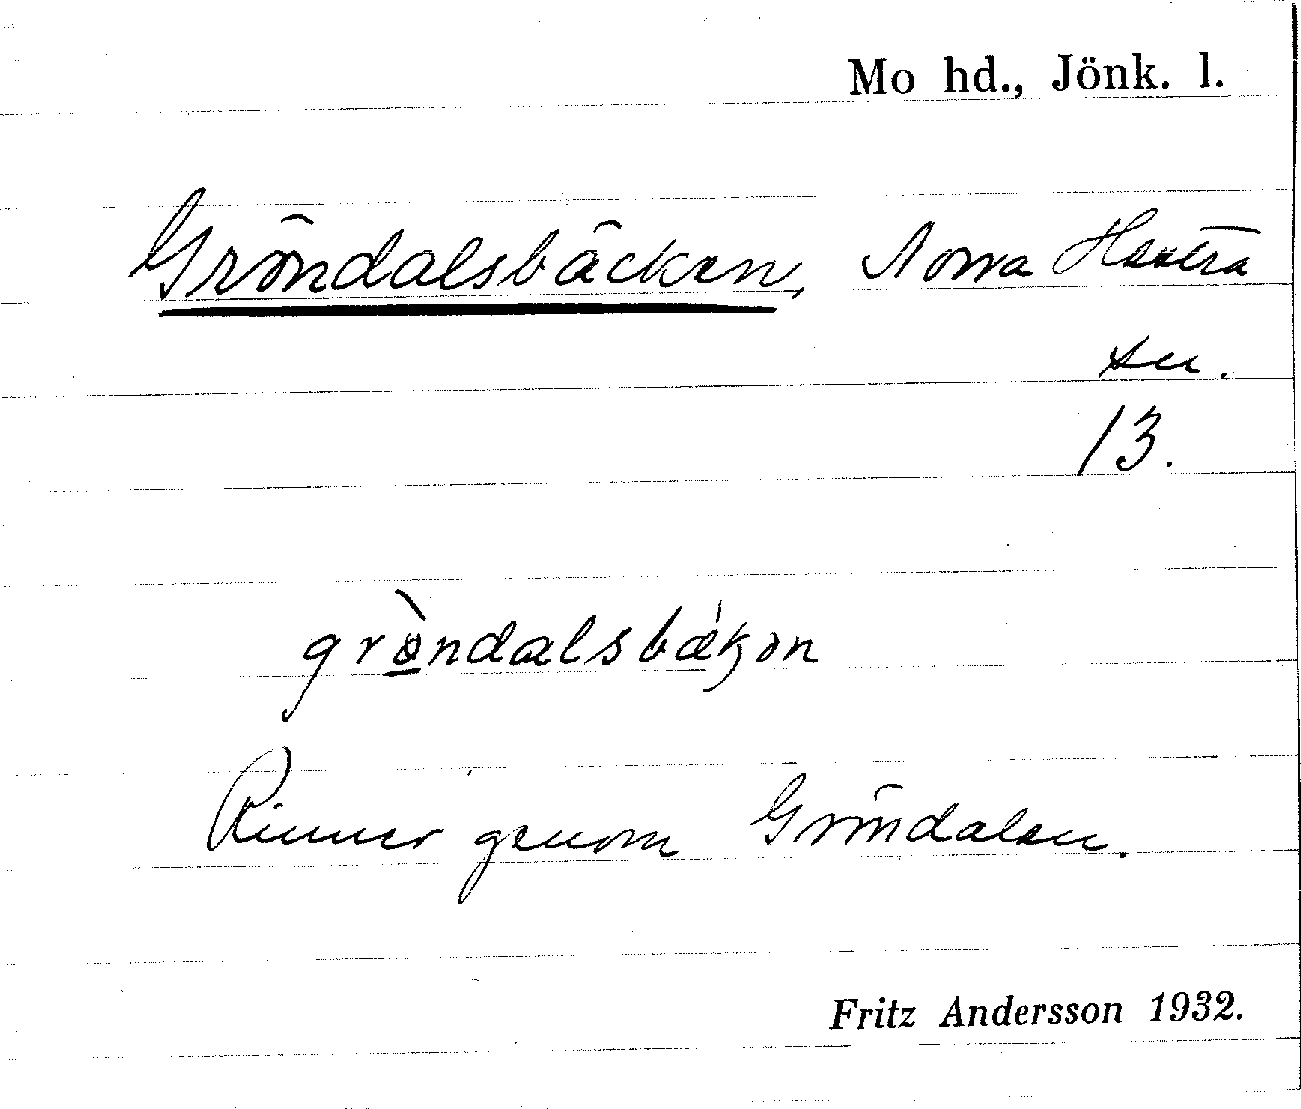 Mo hd., Jönk. l.
Gröndalsbäcken, Norra Hestra
sn.
13.
grö̀ndalsbækən
Rinner genom Gröndalen.
Fritz Andersson 1932.